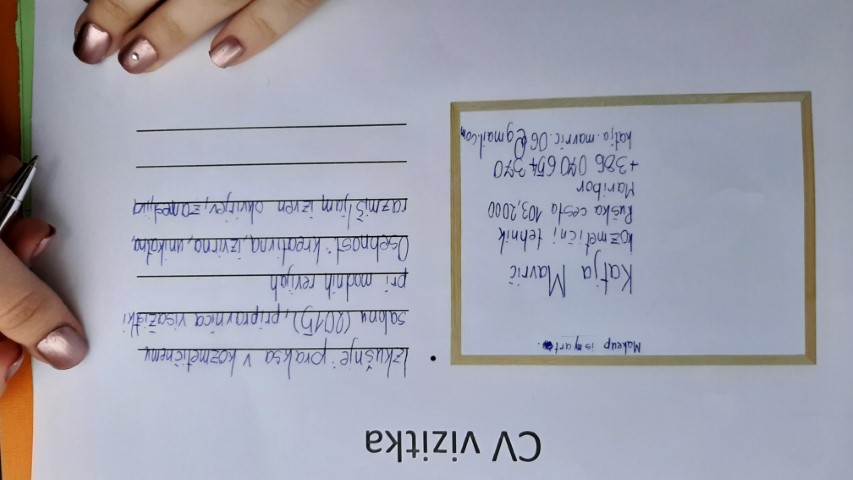 CV vizitka
Makeup is my art.
Katja Mavrič
kozmetični tehnik
Ruška cesta 103, 2000
Maribor
+386 040 654 370
katja.mavric.06@gmail.com
Izkušnje: praksa v kozmetičnemu
salonu (2015), pripravnica vizažistki
pri modnih revijah
Osebnost: kreativna, izvirna, unikatna,
razmišljam izven okvirjev,